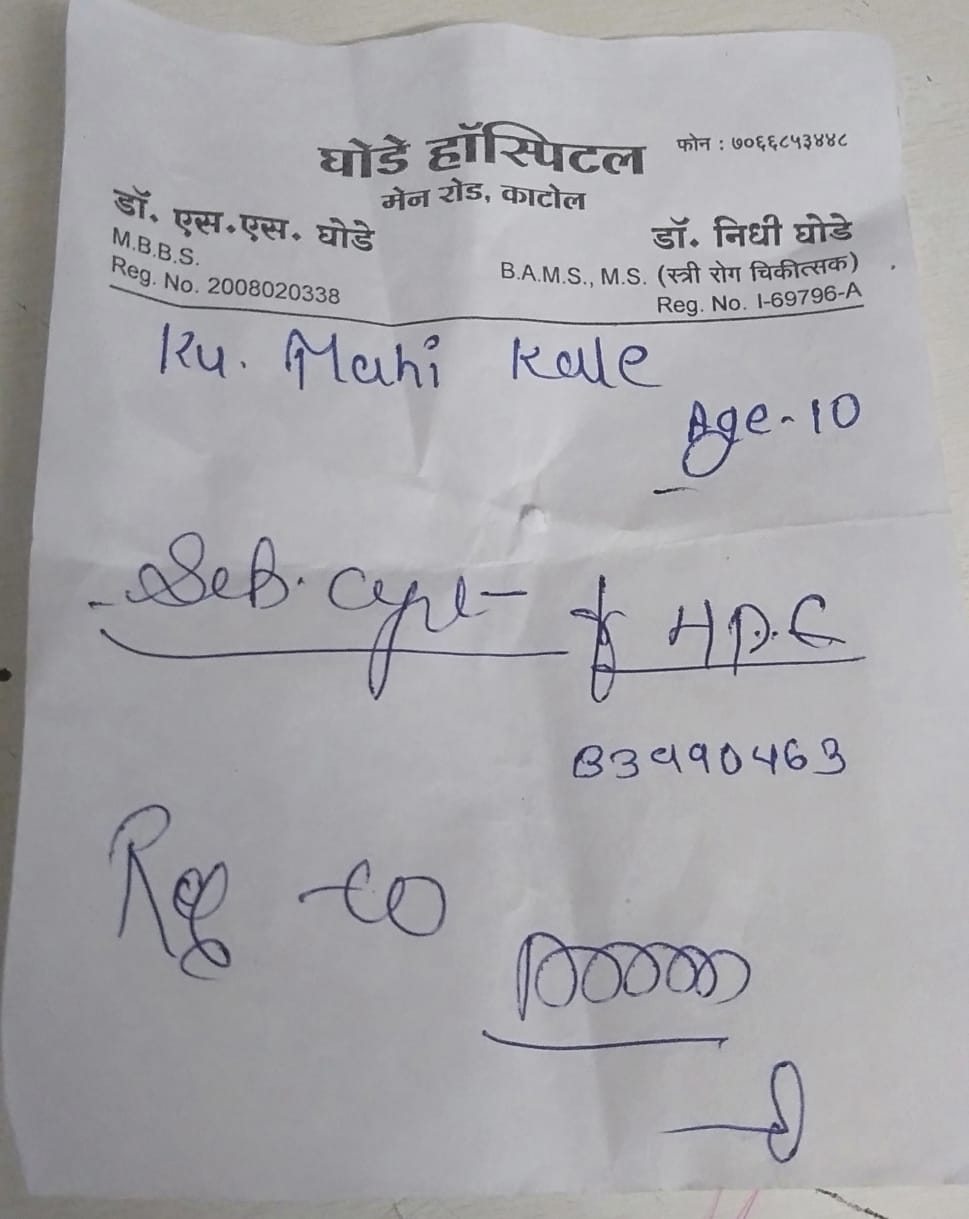 घोडे हॉस्पिटल
फोन : ७०६६८५३४४८
मेन रोड, काटोल
डॉ. एस.एस. घोडे
M.B.B.S.
Reg. No. 2008020338
डॉ. निधी घोडे
B.A.M.S., M.S. (स्त्री रोग चिकीत्सक)
Reg. No. I-69796-A
Ku. Mahi Kale
Age - 10
Seb. cyst - H.P.C
Ref to